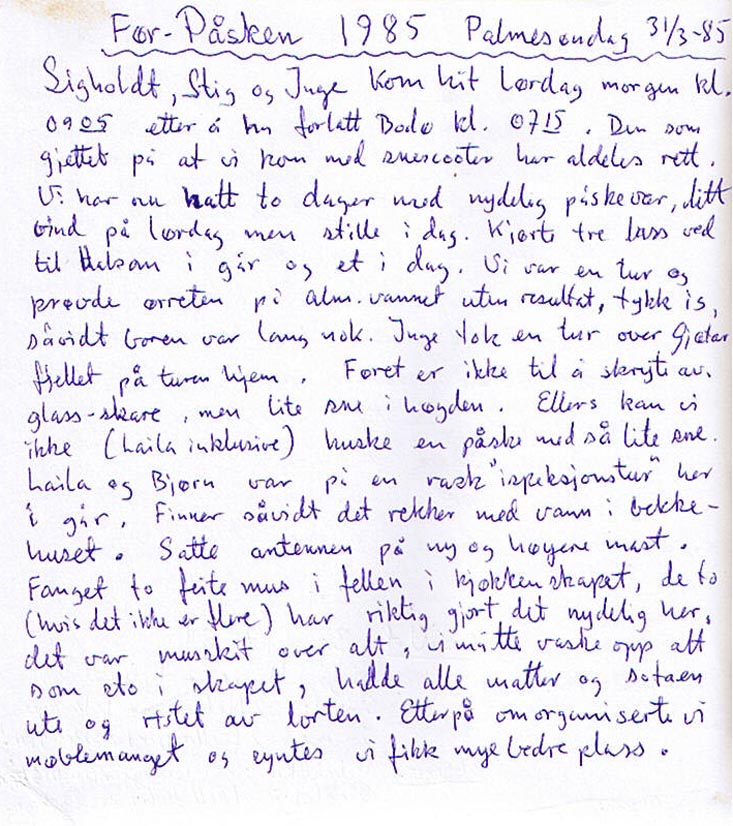 Før-Påsken 1985 Palmesøndag 31/3-85
Sigholdt, Stig og Inge kom hit lørdag morgen kl.
0905 etter å ha forlatt Bodø kl. 0715. Den som
gjettet på at vi kom med snescooter har aldeles rett.
Vi har nu hatt to dager med nydelig påskevær, litt
vind på lørdag men stille i dag. Kjørte tre lass ved
til Halsan i går og et i dag. Vi var en tur og
prøvde ørreten på alm.vannet uten resultat, tykk is,
såvidt boren var lang nok. Inge tok en tur over Gjetar
fjellet på turen hjem. Føret er ikke til å skryte av.
glass-skare, men lite sne i høyden. Ellers kan vi
ikke (Laila inklusive) huske en påske med så lite sne.
Laila og Bjørn var på en rask "ispeksjonstur" her
i går. Finner såvidt det rekker med vann i bekke-
huset. Satte antennen på ny og høyere mast.
Fanget to feite mus i fellen i kjøkkenskapet, de to
(hvis det ikke er flere) har riktig gjort det nydelig her,
det var musskit over alt, vi måtte vaske opp alt
som sto i skapet, hadde alle matter og sofaen
ute og ristet av lorten. Etterpå omorganiserte vi
møblemanget og syntes vi fikk mye bedre plass.